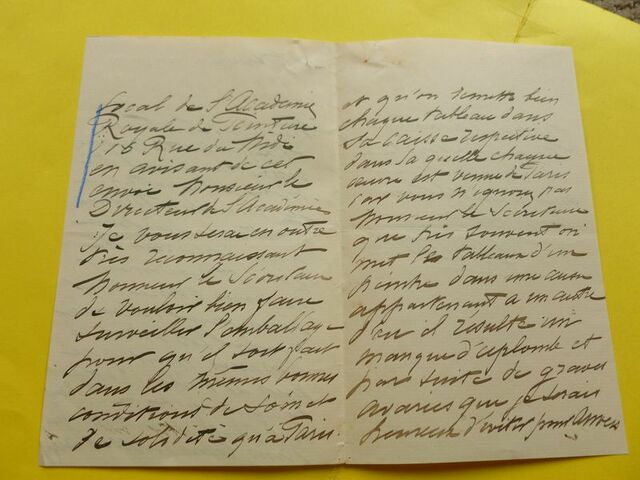 local de l'Académie
Royale de Peinture
118 Rue du Midi
en avisant de cet
envoi Monsieur le
Directeur de l'Académie
Je vous serai en outre
très reconnaissant
Monsieur le Secrétaire
de vouloir bien faire
surveiller l'emballage
pour qu'il soit fait
dans les mêmes bonnes
conditions de soin et
de solidité qu'à Paris
et qu'on remette bien
chaque tableau dans
sa caisse respective
dans laquelle chaque
œuvre est venue de Paris
car vous n'ignorez pas
Monsieur le Secrétaire
que très souvent on
met les tableaux d'un
peintre dans une caisse
appartenant à un autre
d'où il résulte un
manque d'aplomb et
par suite de graves
avaries que je serais
heureux d'éviter pour Anvers